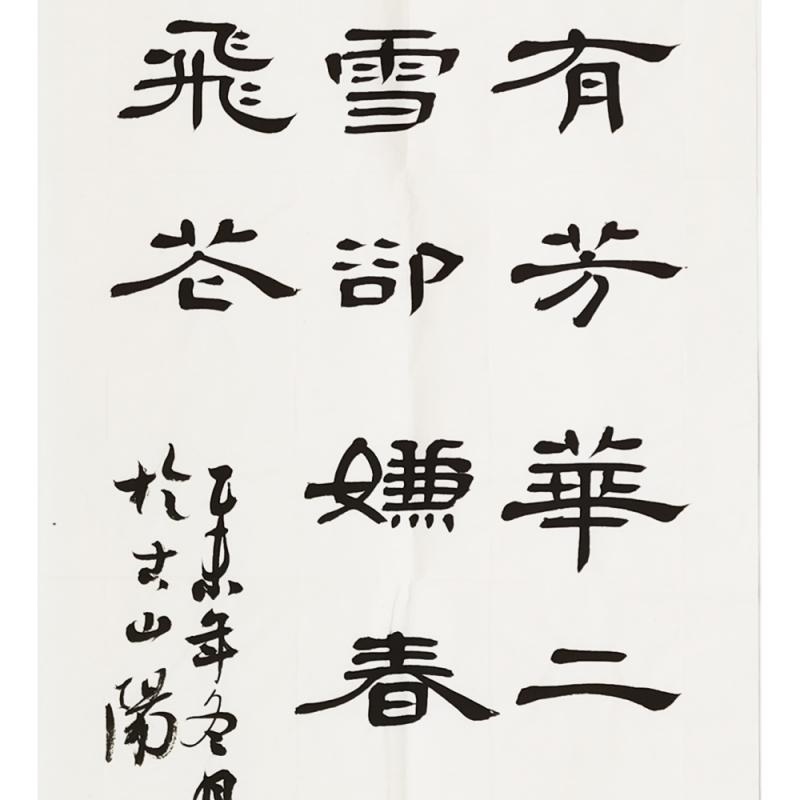 有芳華二
雪卻嫌春
飛花
乙未年冬月
於古山陽